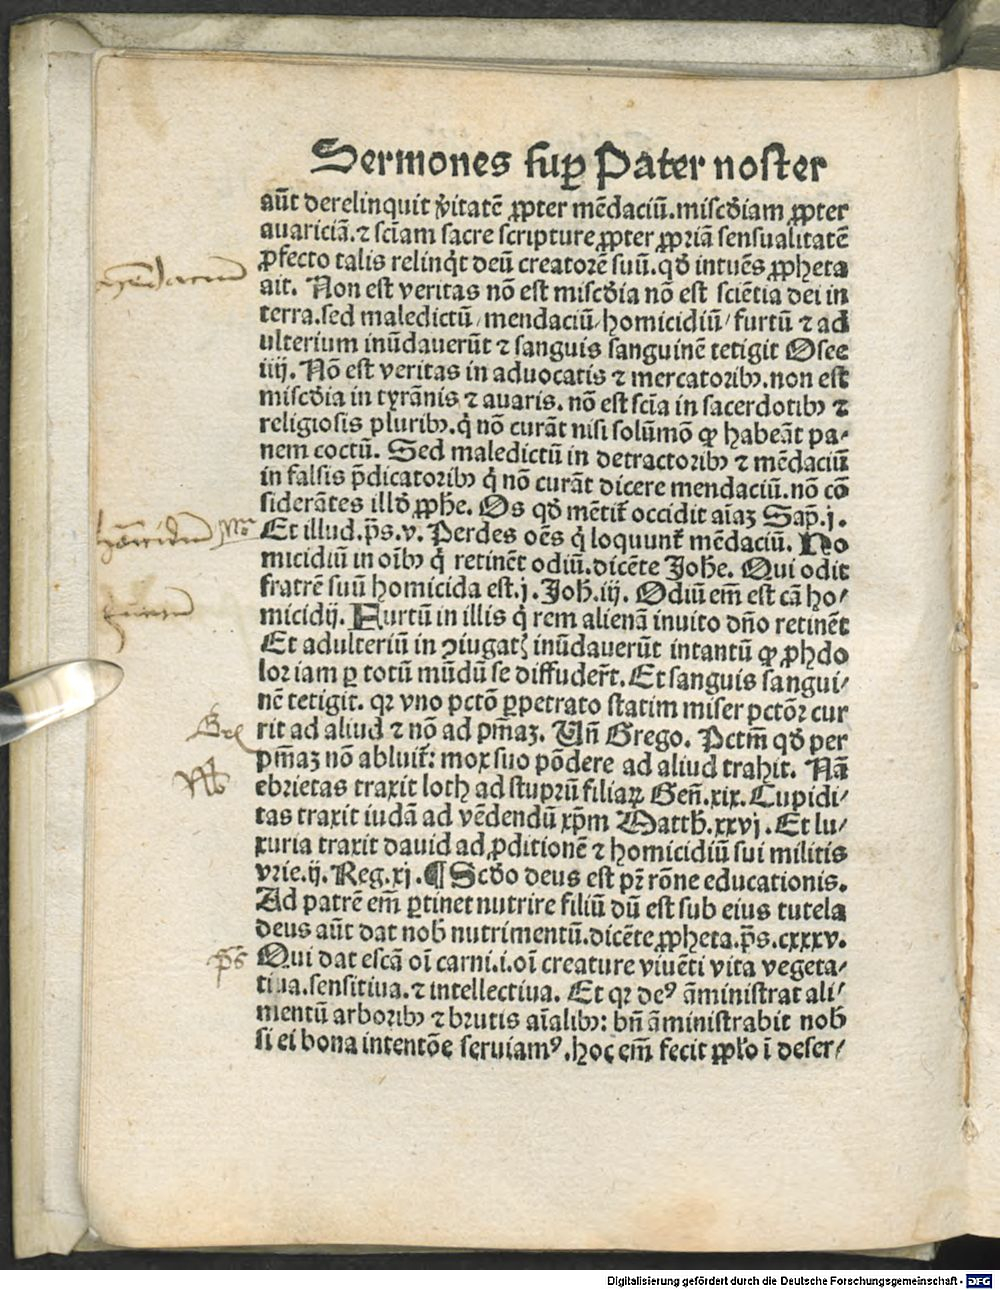 Sermones suꝑ Pater noster
aūt derelinquit v̓itatē ꝓpter mēdaciū.misc̄diam ꝓpter
auariciā.⁊ sciam sacre scripture ꝓpter ꝓpriā sensualitatē
ꝓfecto talis relinq̇t deū creatorē suū.qđ intuēs ꝓpheta
ait. Non est veritas nō est misc̄dia nō est sciētia dei in
terra.sed maledictū/mendaciū/homicidiū/furtū ⁊ ad
ulterium inūdauerūt ⁊ sanguis sanguinē tetigit Osee
iiij. Nō est veritas in aduocatis ⁊ mercatoribꝫ.non est
misc̄dia in tyrānis ⁊ auaris. nō est scīa in sacerdotibꝫ ⁊
religiosis pluribꝫ.q̇ nō curāt nisi solūmō ꝙ habeāt pa/
nem coctū. Sed maledictū in detractoribꝫ ⁊ mēdaciū
in falsis p̄dicatoribꝫ q̇ nō curāt dicere mendaciū.nō cō
siderātes illđ ꝓph̄e. Os qđ mētit̄ occidit aīaꝫ Sap̄.j.
Et illud.p̄s.v. Perdes oēs q̇ loquunt̄ mēdaciū. Ho
micidiū in oībꝫ q̇ retinēt odiū.dicēte Joh̄e. Qui odit
fratrē suū homicida est.j.Joh̄.iij. Odiū em̄ est cā ho/
micidij. Furtū in illis q̇ rem alienā inuito dn̄o retinēt
Et adulteriū in ꝯiugatꝭ inūdauerūt intantū ꝙ ꝓh̄do
lor iam ꝑ totū mūdū se diffuder̄t. Et sanguis sangui/
nē tetigit. qꝛ vno pctō ꝑpetrato statim miser pctōꝛ cur
rit ad aliud ⁊ nō ad pn̄iaꝫ. Un̄ Grego. Pctm̄ qđ per
pn̄iaꝫ nō abluit̄: mox suo pōdere ad aliud trahit. Nā
ebrietas traxit loth ad stuprū filiaꝝ Gen̄.xix. Cupidi/
tas traxit iudā ad vēdendū xp̄m Matth̄.xxvj. Et lu/
xuria traxit dauid ad ꝓditionē ⁊ homicidiū sui militis
vrie.ij.Reg.xj.¶ Scđo deus est pr̄ rōne educationis.
Ad patrē em̄ ꝑtinet nutrire filiū dū est sub eius tutela
deus aūt dat nob̄ nutrimentū.dicēte ꝓpheta.p̄s.cxxxv.
Qui dat escā oī carni.i.oī creature viuēti vita vegeta/
tiua.sensitiua.⁊ intellectiua. Et qꝛ deꝰ āministrat ali/
mentū arboribꝫ ⁊ brutis aīalibꝫ: bn̄ āministrabit nob̄
si ei bona intentōe seruiamꝰ.hoc em̄ fecit ꝓpl̄o ī deser/
mendacium
homicidiu
furtum
Gre
Nō
p̄s
Digitalisierung gefördert durch die Deutsche Forschungsgemeinschaft - DFG